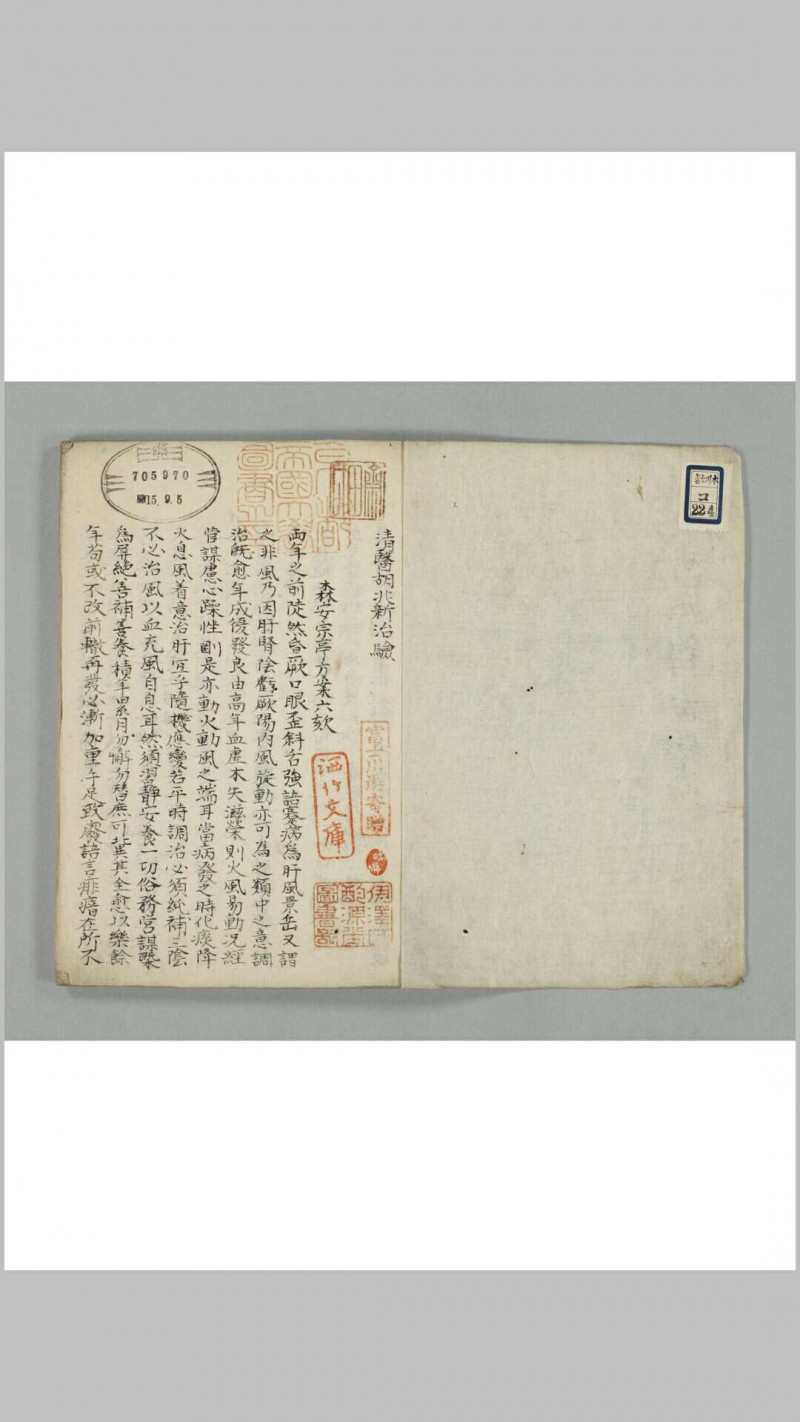 清醫胡兆新治驗
森安宗亭方案六欬
兩年之前陡然昏厥口眼歪斜舌強語蹇病為肝風景岳又謂
之非風乃因肝腎陰虧厥陽內風旋動亦可為之類中之意調
治既愈年成復發良由高年血虛木失滋榮則火風易動况經
營謀慮心躁性剛是亦動火動風之端耳當病發之時化痰降
火息風着意治肝宜乎隨機應變若平時調治必須純補三陰
不必治風以血充風自息耳然須習靜安養一切俗務營謀槩
為屏絶善補善養積年累月勿懈勿替庶可兾其全愈以樂餘
年茍或不改前轍再發必漸加重手足致廢語言非瘖在所不
705970
15.9.5
富士川游寄贈
洒竹文庫
伊澤氏
酌源堂
圖書記
コ
224